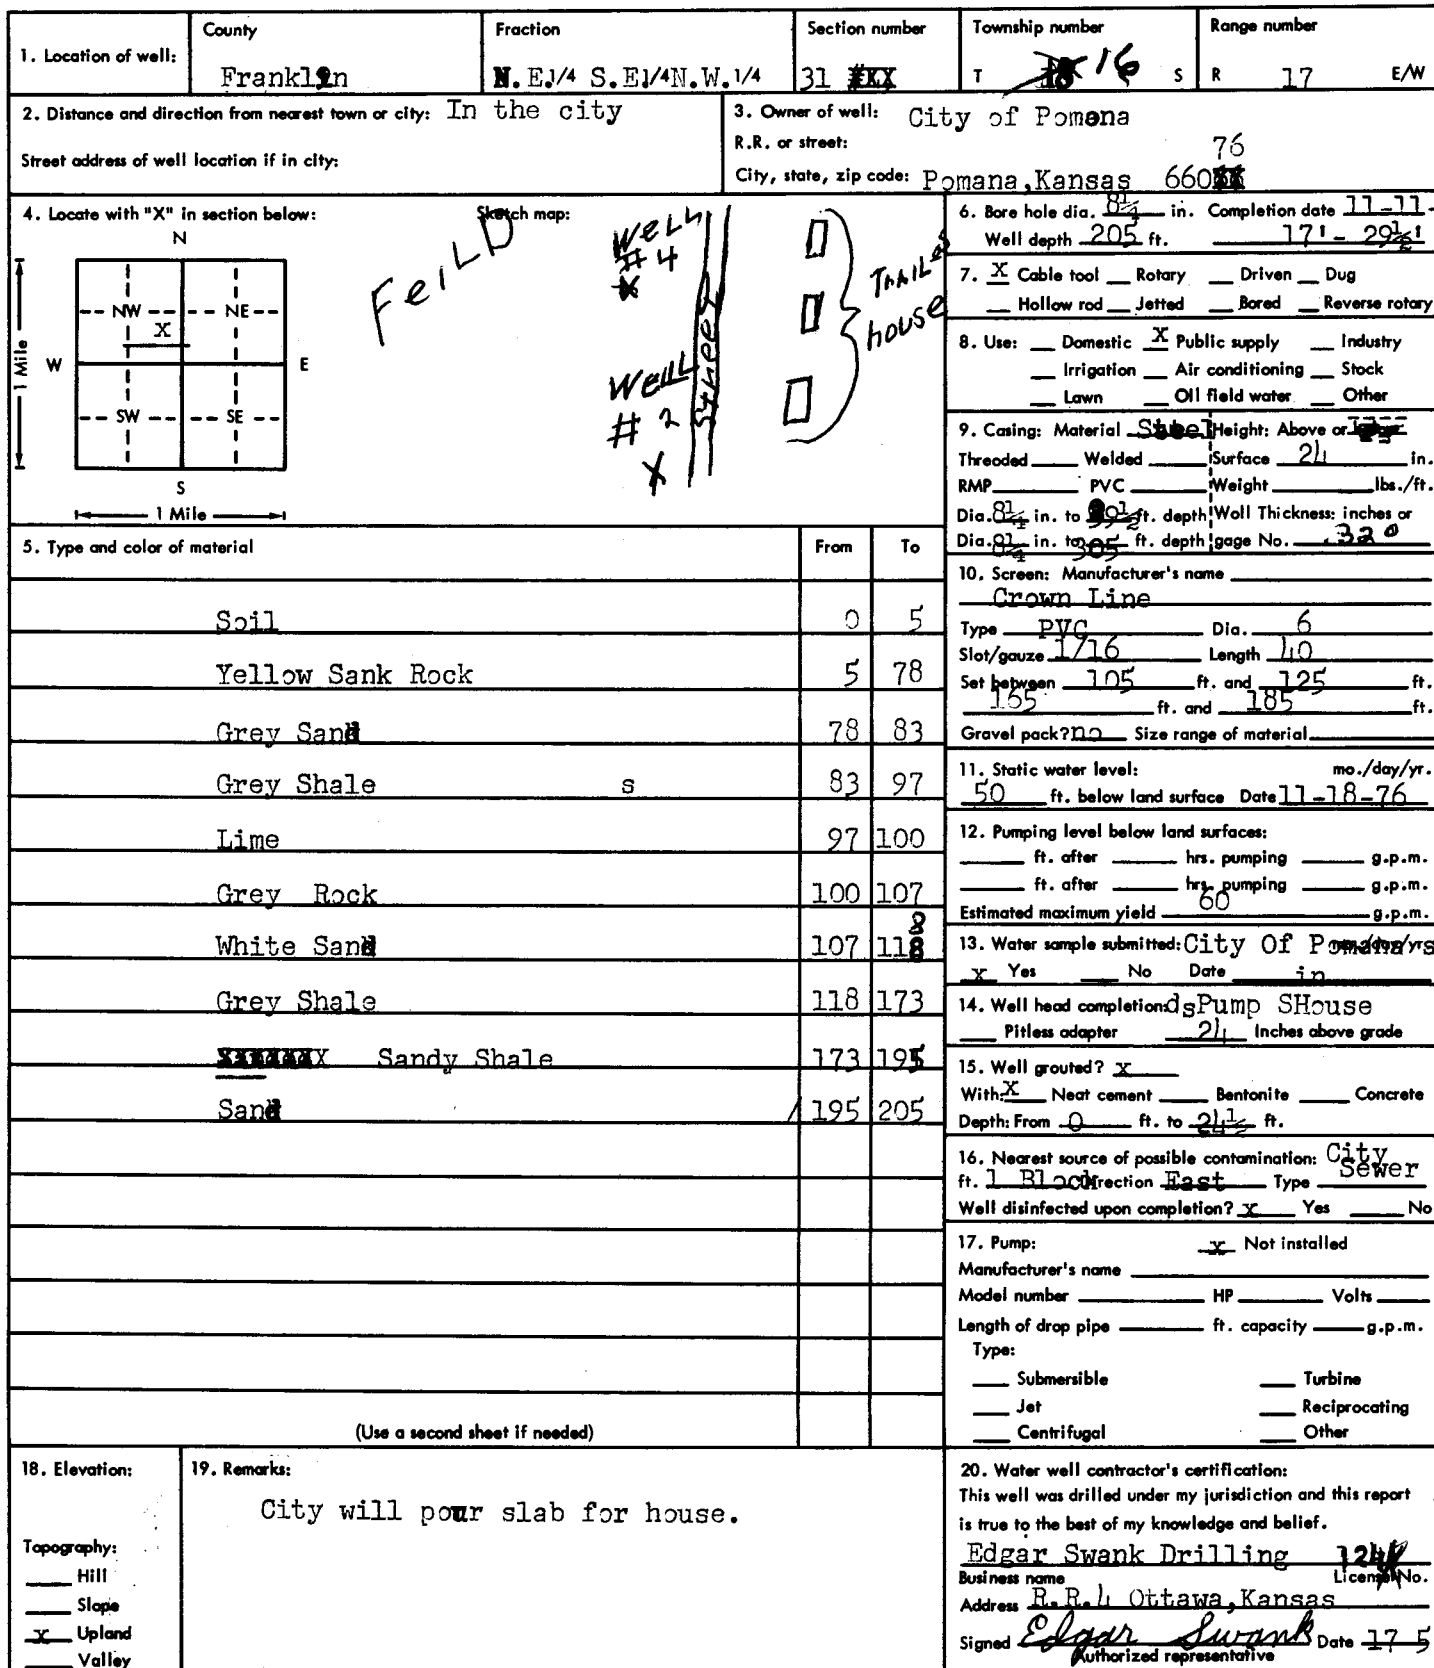 1. Location of well:
County
Franklin
Fraction
N.E1/4 S.E1/4N.W.1/4
Section number
31
Township number
T 16 S
Range number
R 17 E/W
2. Distance and direction from nearest town or city: In the city
Street address of well location if in city:
3. Owner of well: City of Pomona
R.R. or street:
76
City, state, zip code: Pomana,Kansas 660
4. Locate with "X" in section below:
Sketch map:
N
NW NE
X
W E
SW SE
S
1 Mile
1 Mile
FeiLD
Well
#4
X
Well
# 2
X
Street
TRAILer
house
5. Type and color of material From To
Soil 0 5
Yellow Sank Rock 5 78
Grey Sand 78 83
Grey Shale s 83 97
Lime 97 100
Grey Rock 100 107
8
White Sand 107 118
Grey Shale 118 173
Sandy Shale 173 195
Sand 195 205
(Use a second sheet if needed)
6. Bore hole dia. 8 1/4 in. Completion date 11-11-
Well depth 205 ft. 17'- 29½'
7. X Cable tool Rotary Driven Dug
Hollow rod Jetted Bored Reverse rotary
8. Use: Domestic X Public supply Industry
Irrigation Air conditioning Stock
Lawn Oil field water Other
9. Casing: Material Steel Height: Above or
Threaded Welded Surface 24 in.
RMP PVC Weight lbs./ft.
Dia. 8 1/4 in. to ft. depth Wall Thickness: inches or
Dia. 8 1/4 in. to ft. depth gage No. .320
10. Screen: Manufacturer's name
Crown Line
Type PVC Dia. 6
Slot/gauze 1/16 Length 40
Set between 105 ft. and 125 ft.
165 ft. and 185 ft.
Gravel pack? no Size range of material
11. Static water level: mo./day/yr.
50 ft. below land surface Date 11-18-76
12. Pumping level below land surfaces:
ft. after hrs. pumping g.p.m.
ft. after hrs. pumping g.p.m.
Estimated maximum yield 60 g.p.m.
13. Water sample submitted: City Of Pomana's
X Yes No Date in
14. Well head completion: dsPump SHouse
Pitless adapter 24 Inches above grade
15. Well grouted? X
With: X Neat cement Bentonite Concrete
Depth: From 0 ft. to 24½ ft.
16. Nearest source of possible contamination: City
Sewer
ft. 1 Block Direction East Type
Well disinfected upon completion? X Yes No
17. Pump: X Not installed
Manufacturer's name
Model number HP Volts
Length of drop pipe ft. capacity g.p.m.
Type:
Submersible Turbine
Jet Reciprocating
Centrifugal Other
18. Elevation:
Topography:
Hill
Slope
X Upland
Valley
19. Remarks:
City will pour slab for house.
20. Water well contractor's certification:
This well was drilled under my jurisdiction and this report
is true to the best of my knowledge and belief.
Edgar Swank Drilling 124
Business name License No.
Address R.R.4 Ottawa,Kansas
Signed Edgar Swank Date 17 5
Authorized representative